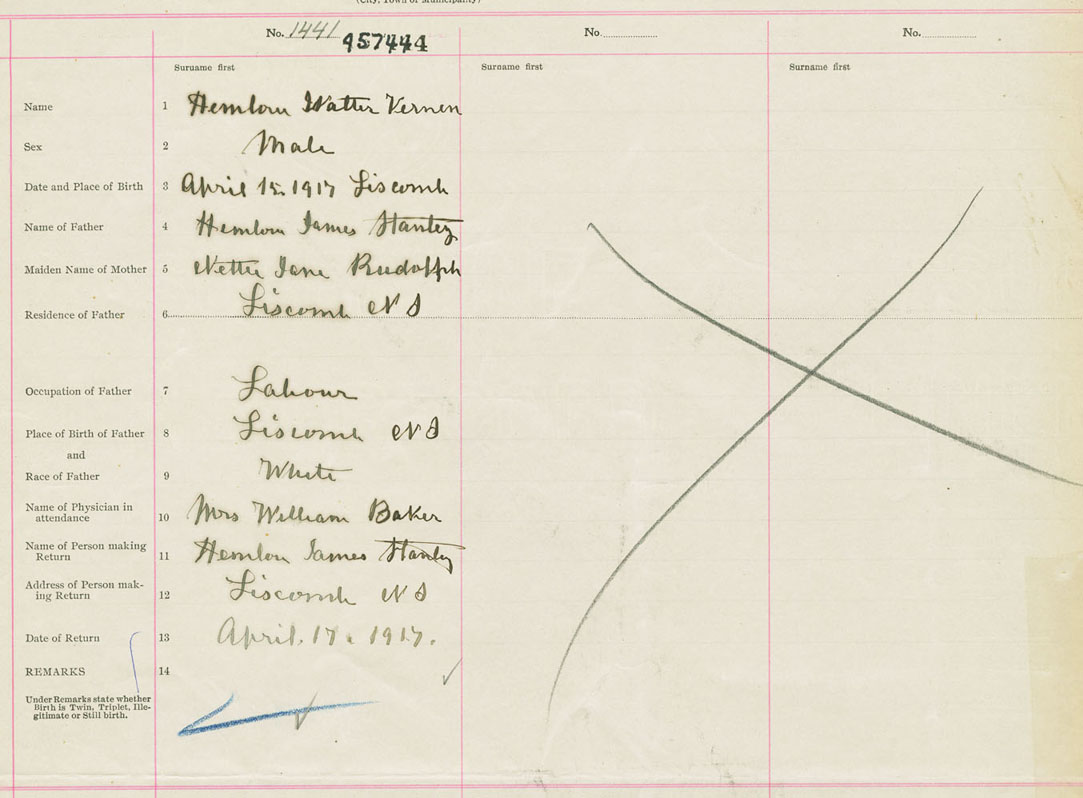 (City, Town or Municipality)
No. 1441 957444
No.
No.
Surname first
Surname first
Surname first
Name 1 Hemlow Walter Vernon
Sex 2 Male
Date and Place of Birth 3 April 15. 1917 Liscomb
Name of Father 4 Hemlow James Stanley
Maiden Name of Mother 5 Nettie Jane Rudolph
Residence of Father 6 Liscomb N S
Occupation of Father 7 Labour
Place of Birth of Father 8 Liscomb N S
and
Race of Father 9 White
Name of Physician in
attendance 10 Mrs William Baker
Name of Person making
Return 11 Hemlow James Stanley
Address of Person mak-
ing Return 12 Liscomb N S
Date of Return 13 April. 17. 1917.
REMARKS 14
Under Remarks state whether
Birth is Twin, Triplet, Ille-
gitimate or Still birth.